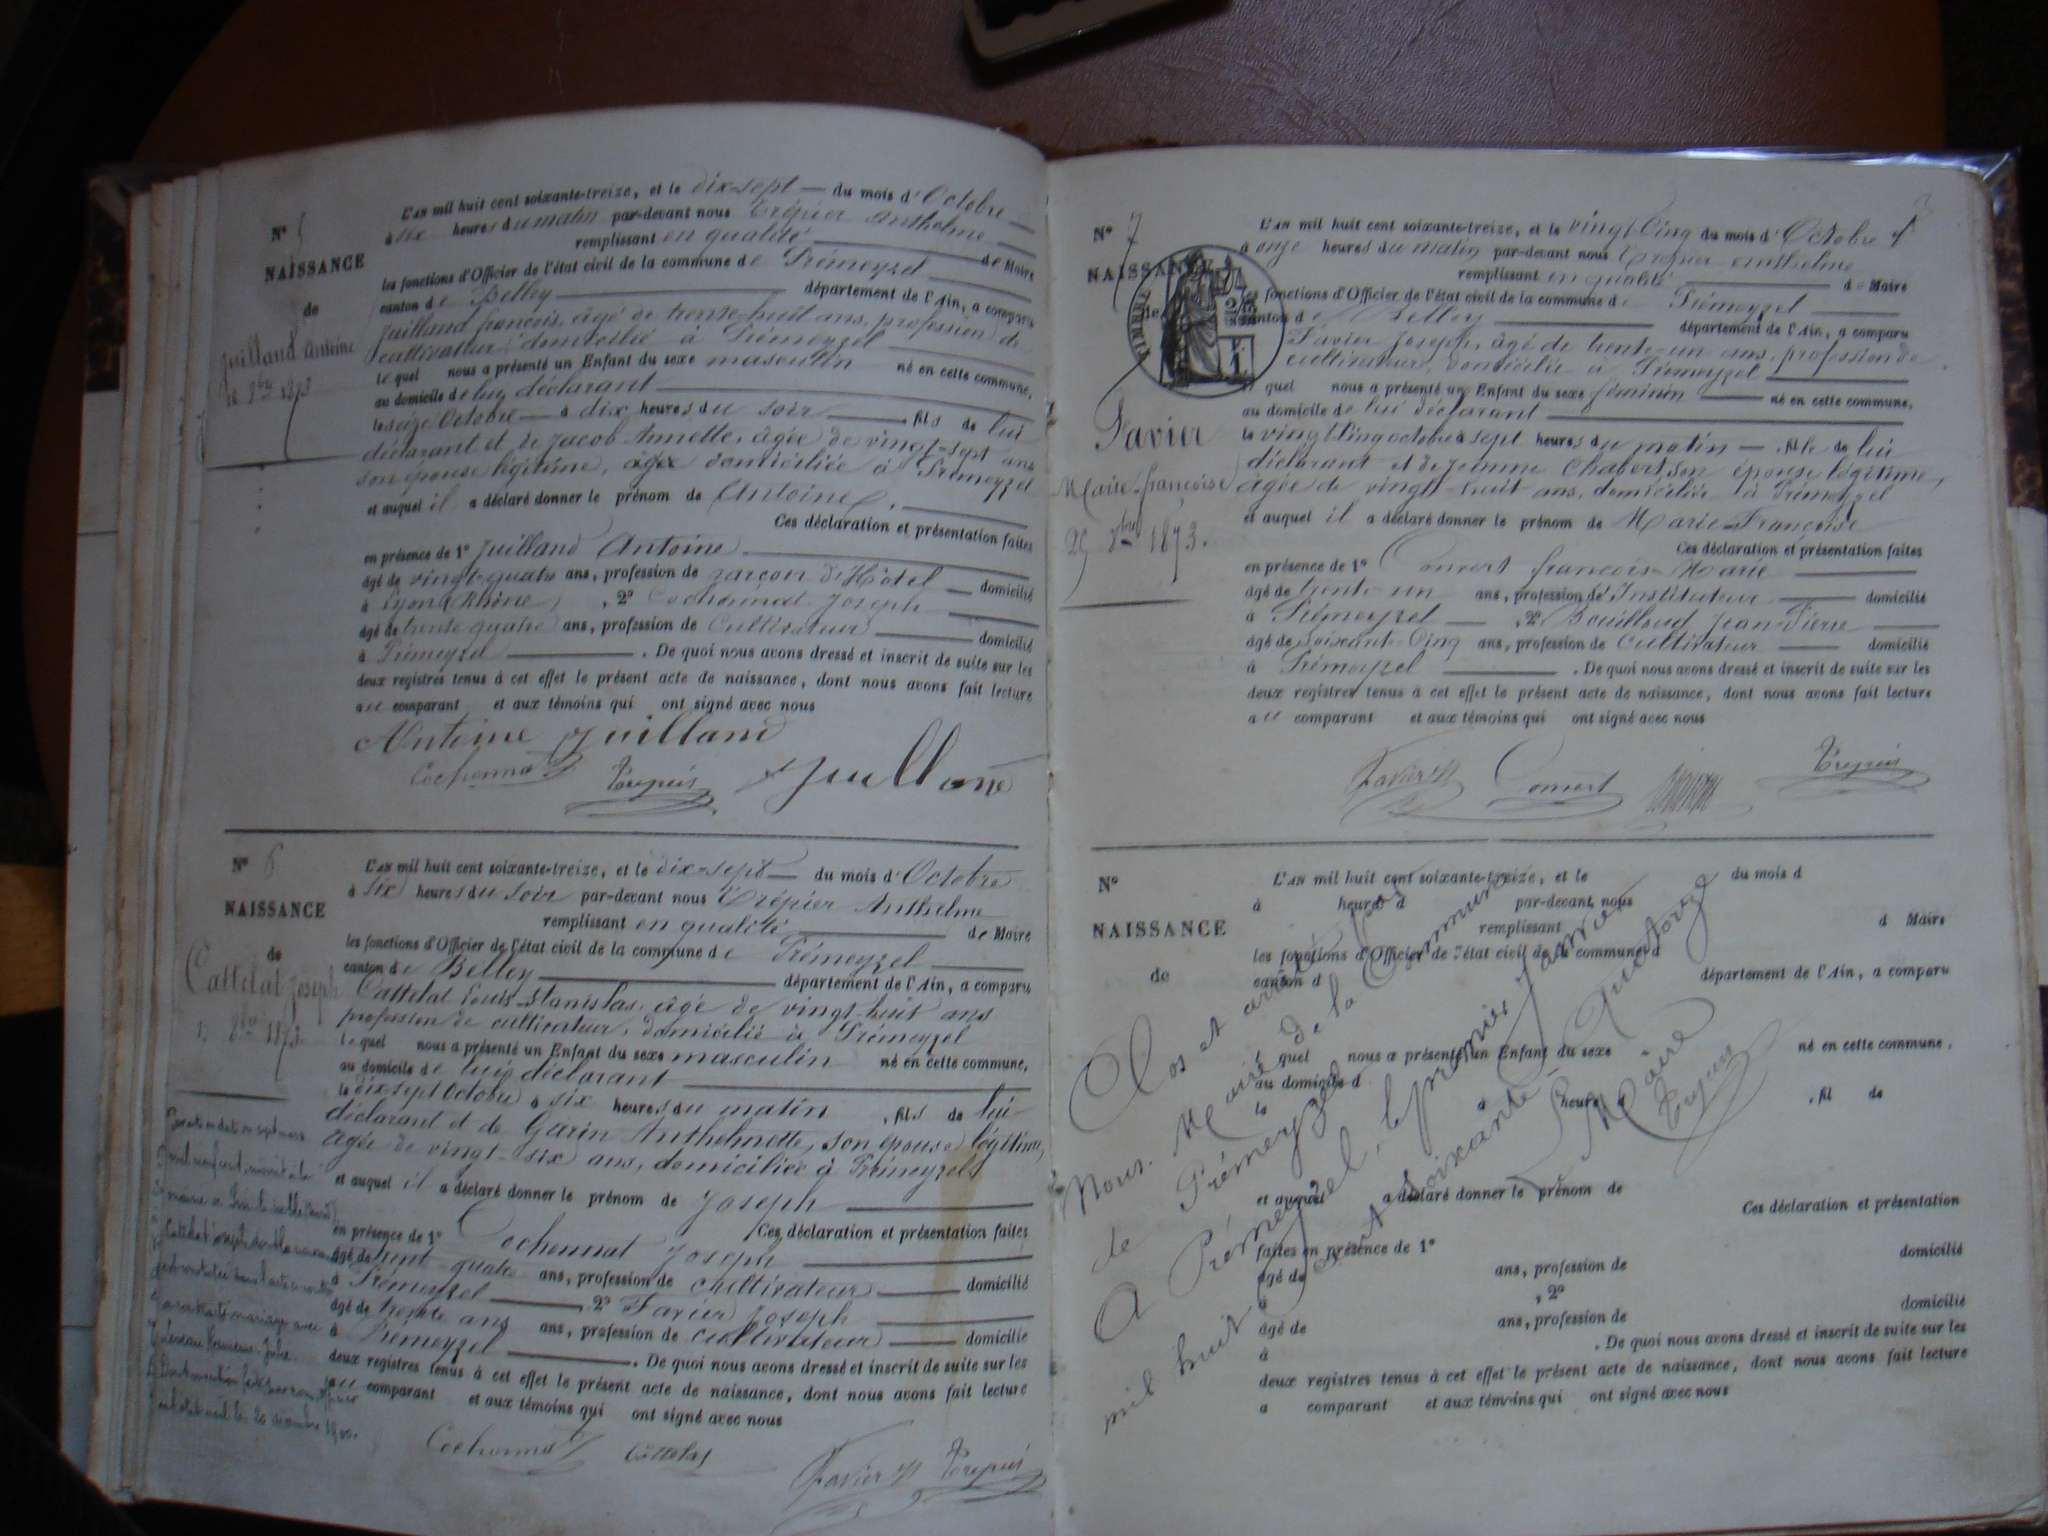 N° 5
NAISSANCE
de
Juilland Antoine
16 8bre 1873
L'AN mil huit cent soixante-treize, et le dix-sept du mois d'Octobre
à six heures du matin par-devant nous Trépier Anthelme
remplissant en qualité de Maire
les fonctions d'Officier de l'état civil de la commune de Prémeyzel
canton de Belley département de l'Ain, a comparu
Juilland françois, âgé de trente-huit ans, profession de
cultivateur domicilié à Prémeyzel
lequel nous a présenté un Enfant du sexe masculin né en cette commune,
au domicile de lui déclarant
le seize Octobre à dix heures du soir fils de lui
déclarant et de Jacob Annette, âgée de vingt-sept ans
son épouse légitime, domiciliée à Prémeyzel
et auquel il a déclaré donner le prénom de Antoine
Ces déclaration et présentation faites
en présence de 1° Juilland Antoine
âgé de vingt-quatre ans, profession de garçon d'Hôtel domicilié
à Lyon (Rhône) , 2° Cochonnat Joseph
âgé de trente quatre ans, profession de Cultivateur domicilié
à Prémeyzel . De quoi nous avons dressé et inscrit de suite sur les
deux registres tenus à cet effet le présent acte de naissance, dont nous avons fait lecture
au comparant et aux témoins qui ont signé avec nous
Antoine Juilland
Cochonnat Trépier Juilland
N° 6
NAISSANCE
de
Cattelat Joseph
17 8bre 1873
L'AN mil huit cent soixante-treize, et le dix-sept du mois d'Octobre
à six heures du soir par-devant nous Trépier Anthelme
remplissant en qualité de Maire
les fonctions d'Officier de l'état civil de la commune de Prémeyzel
canton de Belley département de l'Ain, a comparu
Cattelat Louis-Stanislas, âgé de vingt-huit ans
profession de cultivateur, domicilié à Prémeyzel
lequel nous a présenté un Enfant du sexe masculin né en cette commune,
au domicile de lui déclarant
le dix-sept Octobre à six heures du matin , fils de lui
déclarant et de Garin Anthelmette, son épouse légitime,
âgée de vingt-six ans, domiciliée à Prémeyzel
et auquel il a déclaré donner le prénom de Joseph
Ces déclaration et présentation faites
en présence de 1° Cochennat Joseph
âgé de quatre ans, profession de cultivateur domicilié
à Prémeyzel , 2° Favier Joseph
âgé de trente ans ans, profession de cultivateur domicilié
à Prémeyzel . De quoi nous avons dressé et inscrit de suite sur les
deux registres tenus à cet effet le présent acte de naissance, dont nous avons fait lecture
au comparant et aux témoins qui ont signé avec nous
Cochonnat Cattelat
Favier Jh Trépier
mariage avec
Julie
l'état civil le 20 décembre 1900.
N° 7
NAISSANCE
de
TIMBRE
Favier
Marie-françoise
25 8bre 1873.
L'AN mil huit cent soixante-treize, et le vingt Cinq du mois d'Octobre
à onze heures du matin par-devant nous Trépier Anthelme
remplissant en qualité de Maire
les fonctions d'Officier de l'état civil de la commune de Prémeyzel
canton de Belley département de l'Ain, a comparu
Favier Joseph, âgé de trente-un ans, profession de
cultivateur, domicilié à Prémeyzel
lequel nous a présenté un Enfant du sexe féminin né en cette commune,
au domicile de lui déclarant
le vingt Cinq octobre à sept heures du matin fille de lui
déclarant et de Jeanne Chabert son épouse légitime,
âgée de vingt-huit ans, domiciliée à Prémeyzel
et auquel il a déclaré donner le prénom de Marie-Françoise
Ces déclaration et présentation faites
en présence de 1° Convert françois-Marie
âgé de trente-un ans, profession d'Instituteur domicilié
à Prémeyzel , 2° Bouilloud Jean-Pierre
âgé de Soixante-Cinq ans, profession de Cultivateur domicilié
à Prémeyzel . De quoi nous avons dressé et inscrit de suite sur les
deux registres tenus à cet effet le présent acte de naissance, dont nous avons fait lecture
au comparant et aux témoins qui ont signé avec nous
Favier Jh Convert Trépier
N°
NAISSANCE
de
L'AN mil huit cent soixante-treize, et le du mois d
à heures d par-devant nous
remplissant d Maire
les fonctions d'Officier de l'état civil de la commune d
canton d département de l'Ain, a comparu
l quel nous a présenté un Enfant du sexe né en cette commune,
au domicile d
le à heure , fil de
et auquel a déclaré donner le prénom de
Ces déclaration et présentation
faites en présence de 1°
âgé de ans, profession de domicilié
à , 2°
âgé de ans, profession de domicilié
à . De quoi nous avons dressé et inscrit de suite sur les
deux registres tenus à cet effet le présent acte de naissance, dont nous avons fait lecture
a comparant et aux témoins qui ont signé avec nous
Clos et arrêté par
Nous, Maire de la Commune
de Prémeyzel
A Prémeyzel, le premier Janvier
mil huit cent soixante-Quatorze
Le Maire
Trépier